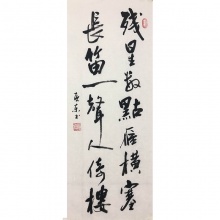 残星数點雁橫塞
長笛一聲人倚樓